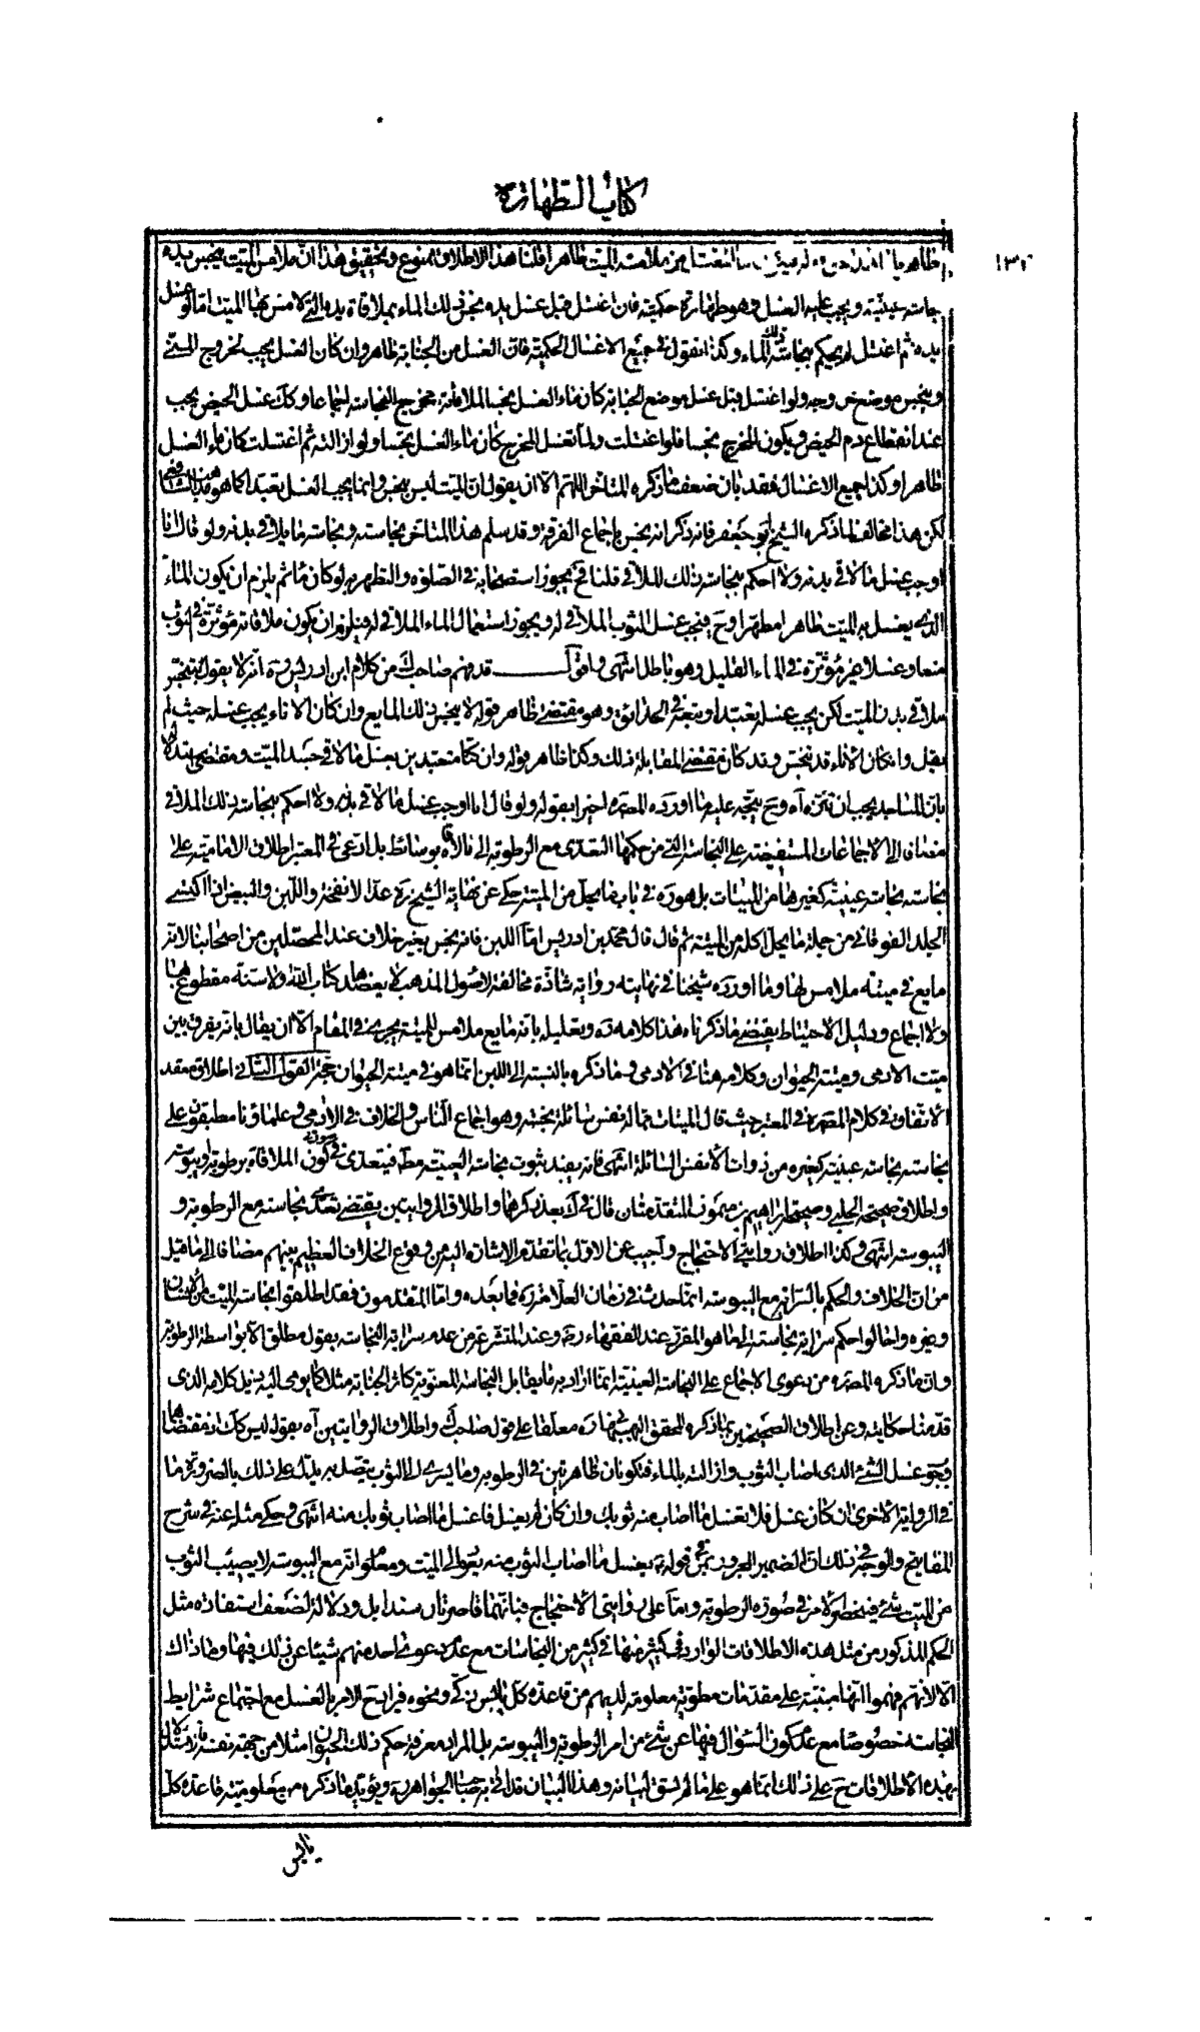 كتاب الطهارة
١٣٢
نجاسة عينية ويجب عليه الغسل وهو طهارة حكمية فان اغتسل قبل غسل يده نجس ذلك الماء بملاقاة يده التي لامس بها الميت اما لو غسل
يده ثم اغتسل لم يحكم بنجاسة ذلك الماء وكذا نقول في جميع الاغسال الحكمية فان الغسل من الجنابة ظاهر وان كان الغسل يجب لخروج المني
وينجس موضع خروجه ولو اغتسل قبل غسل موضع الجنابة كان ماء الغسل نجسا لملاقاته مخرج النجاسة اجماعا وكك غسل الحيض يجب
عند انقطاع دم الحيض ويكون المخرج نجسا فلو اغتسلت ولما تغسل المخرج كان ماء الغسل نجسا ولو ازالته ثم اغتسلت كان ماء الغسل
طاهرا وكذا جميع الاغسال فقد بان ضعف ما ذكره المتاخر اللهم الا ان يقول ان الميت ليس بنجس وانما يجب الغسل تعبدا كما هو مذهب الشافعي
لكن هذا مخالف لما ذكره الشيخ ابو جعفر فانه ذكر انه نجس باجماع الفرقة وقد سلم هذا المتاخر نجاسته ونجاسة ما يلاقي بدنه ولو قال انا
اوجب غسل ما لاقى بدنه ولا احكم بنجاسة ذلك الملاقي قلنا فح يجوز استصحابه في الصلوة والتطهر به لو كان ماء ثم يلزم ان يكون الماء
الذي يغسل به الميت طاهرا مطهرا وح فيجب غسل الثوب الملاقي له ويجوز استعمال الماء الملاقي له فيلزم ان يكون ملاقاته مؤثرة في الثوب
منعا وغسلا وغير مؤثرة في الماء القليل وهو باطل انتهى واقول قد فهم صاحب ك من كلام ابن ادريس ره انه لا يقول بتنجس
ملاقي بدن الميت لكن يجب غسله تعبدا وتبعه في الحدائق وهو مقتضى ظاهر قوله لا ينجس ذلك المايع وان كان الاناء يجب غسله حيث لم
يقل وان كان الاناء قد تنجس وقد كان مقتضى المقابلة ذلك وكذا ظاهر قوله وان كنا متعبدين بغسل ما لاقى جسد الميت ومقتضى استدلاله
بان المساجد يجب ان تنزه آه وح يتجه عليه ما اورده المصنف ره اخيرا بقوله ولو قال انا اوجب غسل ما لاقى بدنه ولا احكم بنجاسة ذلك الملاقي
مضافا الى الاجماعات المستفيضة على النجاسة التي من حكمها التعدي مع الرطوبة الى ما لاقاه بوسائط بل ادعى في المعتبر اطلاق الامامية على
نجاسته نجاسة عينية كغيرها من الميتات بل هو ره في باب ما يحل من الميتة حكى عن نهاية الشيخ ره عد الانفخة واللبن والبيض اذا اكتسى
الجلد الفوقاني من جملة ما يحل اكله من الميتة ثم قال قال محمد بن ادريس اما اللبن فانه نجس بغير خلاف عند المحصلين من اصحابنا لانه
مايع في ميتة ملامس لها وما اورده شيخنا في نهايته رواية شاذة مخالفة لاصول المذهب لا يعضدها كتاب الله ولا سنة مقطوع بها
ولا اجماع ودليل الاحتياط يقتضي ما ذكرناه هذا كلامه ره وتعليله بانه مايع ملامس للميتة يجري في المقام الا ان يقال بانه يفرق بين
ميت الادمي وميتة الحيوان وكلامه هنا في الادمي وما ذكره بالنسبة الى اللبن انما هو في ميتة الحيوان حجة القول الثاني اطلاق معقد
الاتفاق في كلام المصنف ره في المعتبر حيث قال الميتات مما له نفس سائلة نجسة وهو اجماع الناس والخلاف في الآدمي وعلماؤنا مطبقون على
نجاسته نجاسة عينية كغيره من ذوات الانفس السائلة انتهى فانه يفيد ثبوت نجاسة العينية مطلقا فيتعدى في صورة كون الملاقاة برطوبة او يبوسة
واطلاق صحيحة الحلبي وصحيحة ابراهيم بن ميمون المتقدمتان قال في ك بعد ذكرهما واطلاق الروايتين يقتضي تعدي نجاسته مع الرطوبة و
اليبوسة انتهى وكذا اطلاق روايتي الاحتجاج واجيب عن الاول بما تقدم الاشارة اليه من وقوع الخلاف العظيم بينهم مضافا الى ما قيل
من ان الخلاف والحكم بالسراية مع اليبوسة انما حدث في زمان العلامة ره فما بعده واما المتقدمون فقد اطلقوا نجاسة الميت من الانسان
وغيره واحالوا حكم سراية نجاسته الى ما هو المقرر عند الفقهاء ره وعند المتشرعة من عدم سراية النجاسة بقول مطلق الا بواسطة الرطوبة
وان ما ذكره المصنف ره من دعوى الاجماع على النجاسة العينية انما اراد به ما يقابل النجاسة المعنوية كاثر الجنابة مثلا كما يومي اليه ذيل كلامه الذي
قدمنا حكايته وعن اطلاق الصحيحين بما ذكره المحقق البهبهاني ره معلقا على قول صاحب ك واطلاق الروايتين آه بقوله ليس كك اذ مقتضاهما
وجوب غسل الشيء الذي اصاب الثوب وازالته بالماء فتكونان ظاهرتين في الرطوبة وما يسري الى الثوب يتصل به يدلك على ذلك بالضرورة ما
في الرواية الاخرى ان كان غسل فلا تغسل ما اصاب منه ثوبك وان كان لم يغسل فاغسل ما اصاب ثوبك منه انتهى وحكى مثله عنه في شرح
المفاتيح والوجه في ذلك ان الضمير المجرور بمن في قوله يغسل ما اصاب الثوب منه يعود الى الميت ومعلوم انه مع اليبوسة لا يصيب الثوب
من الميت شيء فينحصر الامر في صورة الرطوبة واما على روايتي الاحتجاج فبانهما قاصرتان سندا بل ودلالة لضعف استفادة مثل
الحكم المذكور من مثل هذه الاطلاقات الوارد في كثير منها في كثير من النجاسات مع عدم دعوى احد منهم شيئا عن ذلك فيها وما ذاك
الا لانهم فهموا انها مبتنية على مقدمات مطوية معلومة لديهم من قاعدة كل يابس زكي ونحوه فيراد ح الامر بالغسل مع اجتماع شرايط
النجاسة خصوصا مع عدم كون السؤال فيها عن شيء من امر الرطوبة واليبوسة بل المراد معرفة حكم ذلك الحيوان مثلا من جهة نفسه فالاستدلال
بهذه الاطلاقات ح على ذلك انما هو على ما لم يسق لبيانه وهذا البيان قد اتى به صاحب الجواهر ره ويؤيد ما ذكره من معلومية قاعدة كل
يابس